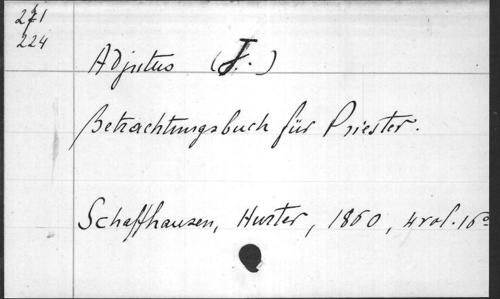 271
224
Adjutus (J.)
Betrachtungsbuch für Priester.
Schaffhausen, Hurter, 1860, 4 vol. 16º